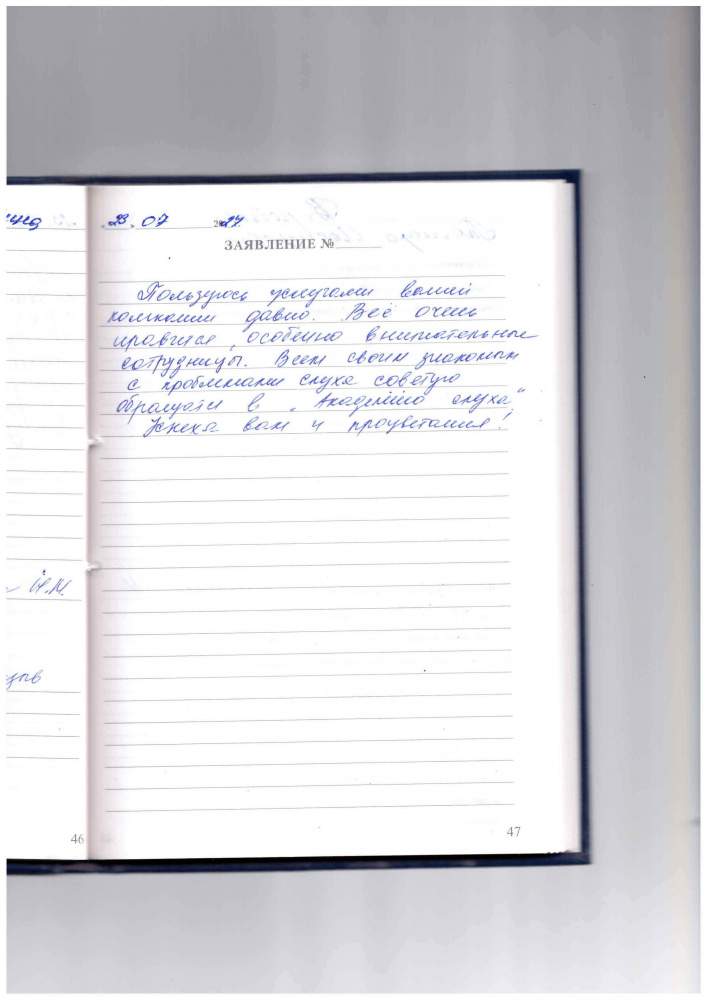 23. 07 2024.
ЗАЯВЛЕНИЕ №
Пользуюсь услугами вашей
компании давно. Всё очень
нравится, особенно внимательные
сотрудницы. Всем своим знакомым
с проблемами слуха советую
обращаться в „Академию слуха“
Успеха вам и процветания!
И.М.
46
47